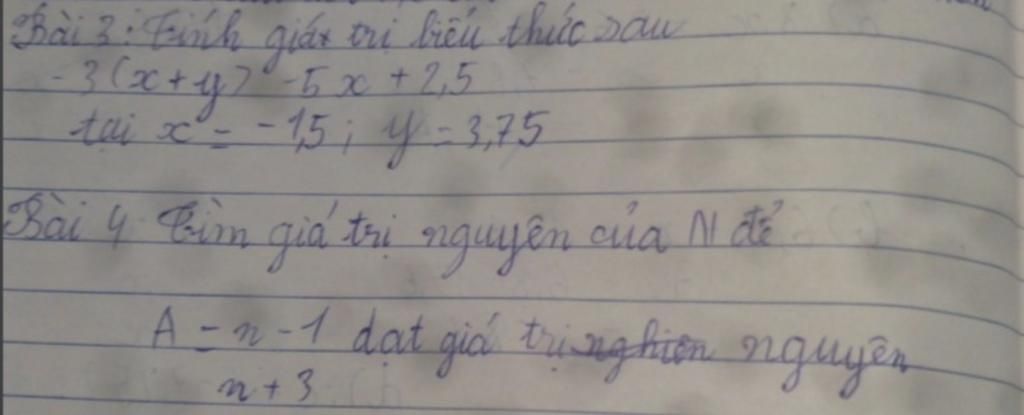 Bài 3: Tính giá trị biểu thức sau
-3(x+y) -5x + 2,5
tại x = -1,5; y = 3,75
Bài 4 Tìm giá trị nguyên của N để
A = n - 1 đạt giá trị nguyên
n + 3